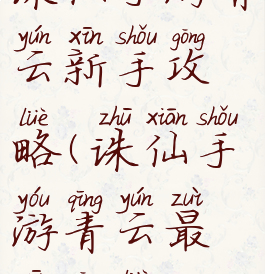 yún xīn shǒu gōng
云新手攻
lüè zhū xiān shǒu
略(诛仙手
yóu qīng yún zuì
游青云最